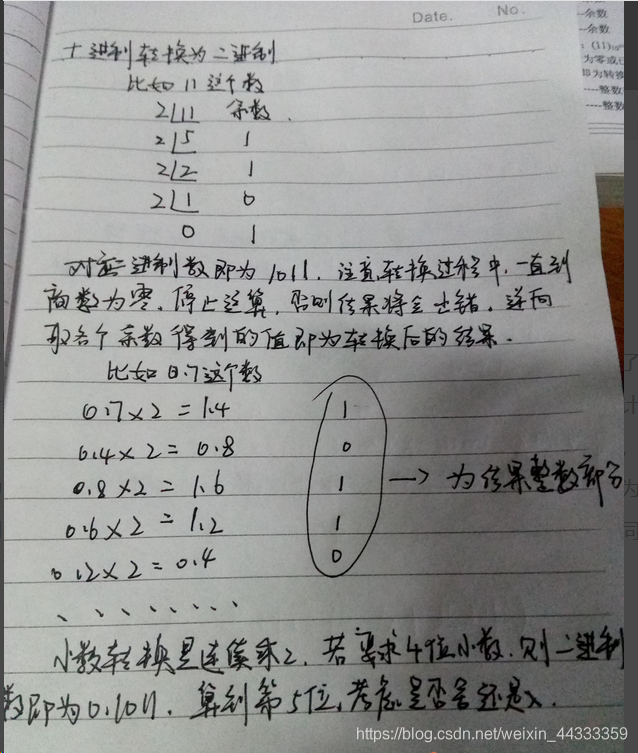 Date. No.
十进制转换为二进制
比如 11 这个数
2 11 余数.
2 5 1
2 2 1
2 1 0
0 1
对应二进制数即为1011. 注意转换过程中, 一直到
商数为零, 停止运算, 否则结果将会出错. 逆向
取各个余数得到的值即为转换后的结果.
比如0.7这个数
0.7×2 = 1.4 1
0.4×2 = 0.8 0
0.8×2 = 1.6 1 → 为结果整数部分
0.6×2 = 1.2 1
0.2×2 = 0.4 0
、、、、、、、、
小数转换是连续乘2. 若要求4位小数, 则二进制
数即为0.1011. 算到第5位, 考虑是否舍还是入.
---余数
--余数
: (11)₁₀
为零或
即为转换
----整数
----整数
https://blog.csdn.net/weixin_44333359